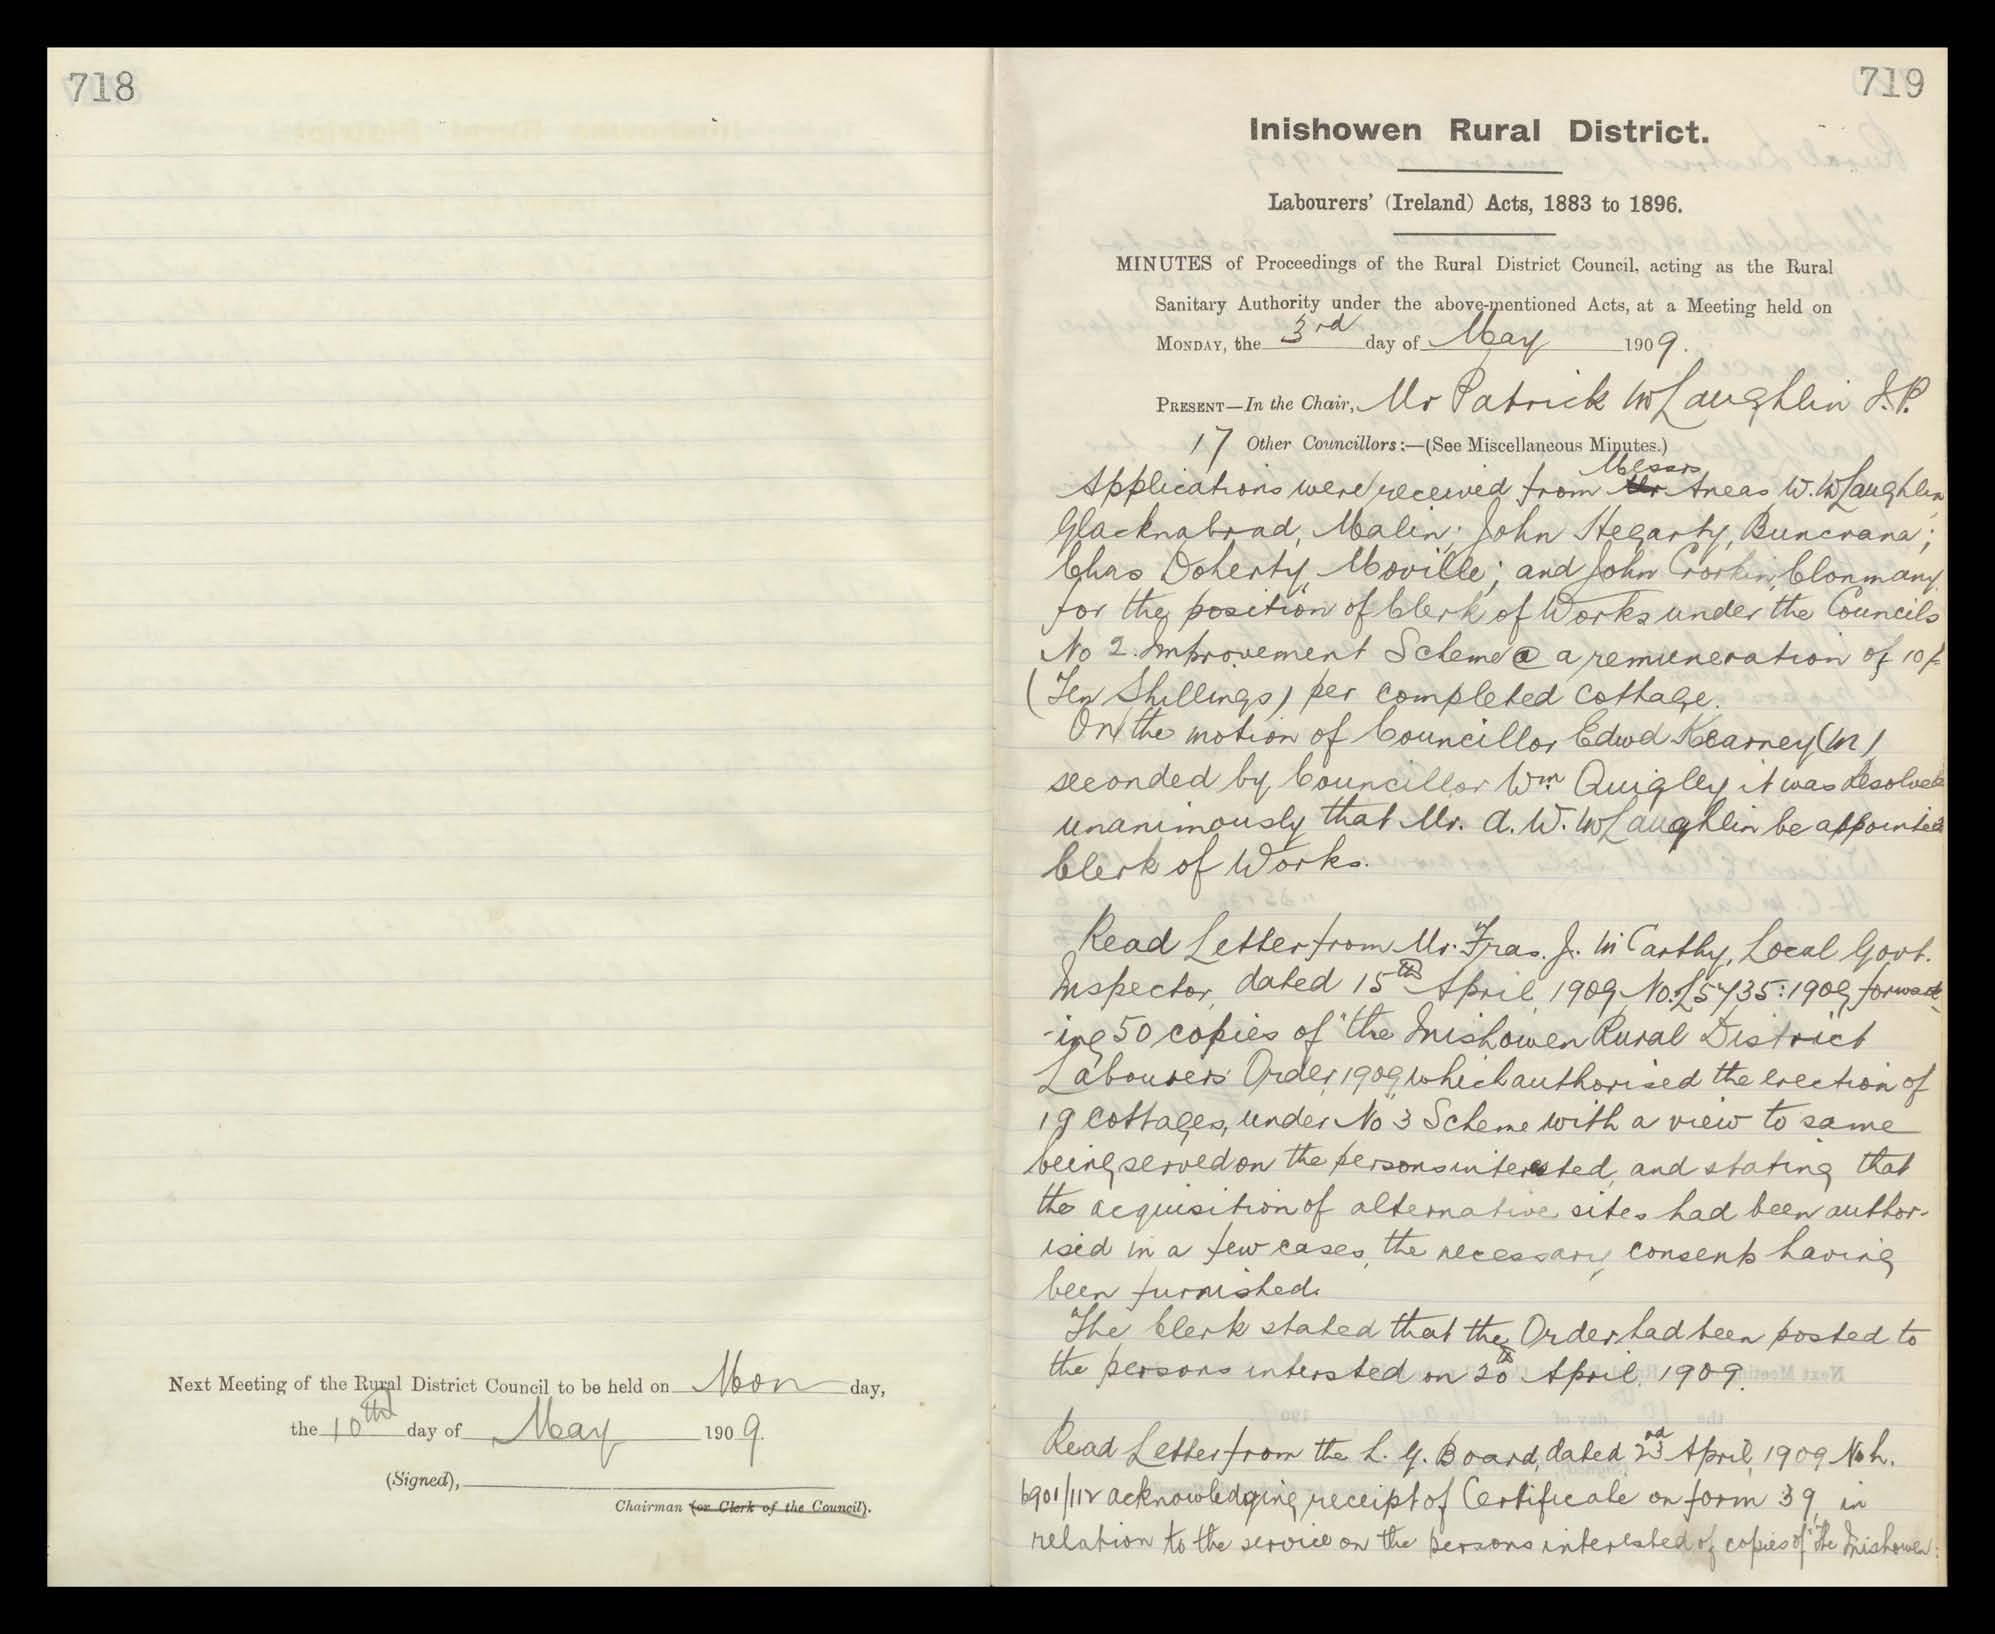 718
Next Meeting of the Rural District Council to be held on Mon day,
the 10th day of May 1909.
(Signed),
Chairman (or Clerk of the Council).
719
Inishowen Rural District.
Labourers' (Ireland) Acts, 1883 to 1896.
MINUTES of Proceedings of the Rural District Council, acting as the Rural
Sanitary Authority under the above-mentioned Acts, at a Meeting held on
MONDAY, the 3rd day of May 1909.
PRESENT—In the Chair, Mr Patrick McLaughlin J.P.
17 Other Councillors:—(See Miscellaneous Minutes.)
Messrs
Applications were received from Mr Aneas W. McLaughlin
Glacknabrad, Malin; John Hegarty, Buncrana;
Chas Doherty, Moville; and John Crorkin, Clonmany
for the position of Clerk of Works under the Councils
No 2. Improvement Scheme @ a remuneration of 10/-
(Ten Shillings) per completed cottage.
On the motion of Councillor Edwd Kearney (M)
seconded by Councillor Wm Quigley it was resolved
unanimously that Mr. A. W. McLaughlin be appointed
Clerk of Works.
Read Letter from Mr. Fras. J. McCarthy, Local Govt.
Inspector, dated 15th April, 1909, No. L5735:1909, forward-
-ing 50 copies of "the Inishowen Rural District
Labourers Order, 1909, which authorised the erection of
19 cottages, under No 3 Scheme with a view to same
being served on the persons interested, and stating that
the acquisition of alternative sites had been author-
ised in a few cases, the necessary consents having
been furnished.
The Clerk stated that the Order had been posted to
the persons intersted on 20th April, 1909.
Read Letter from the L. G. Board, dated 23rd April, 1909 No L.
6901/112 acknowledging receipt of Certificate on form 39, in
relation to the service on the persons interested of copies of "The Inishowen